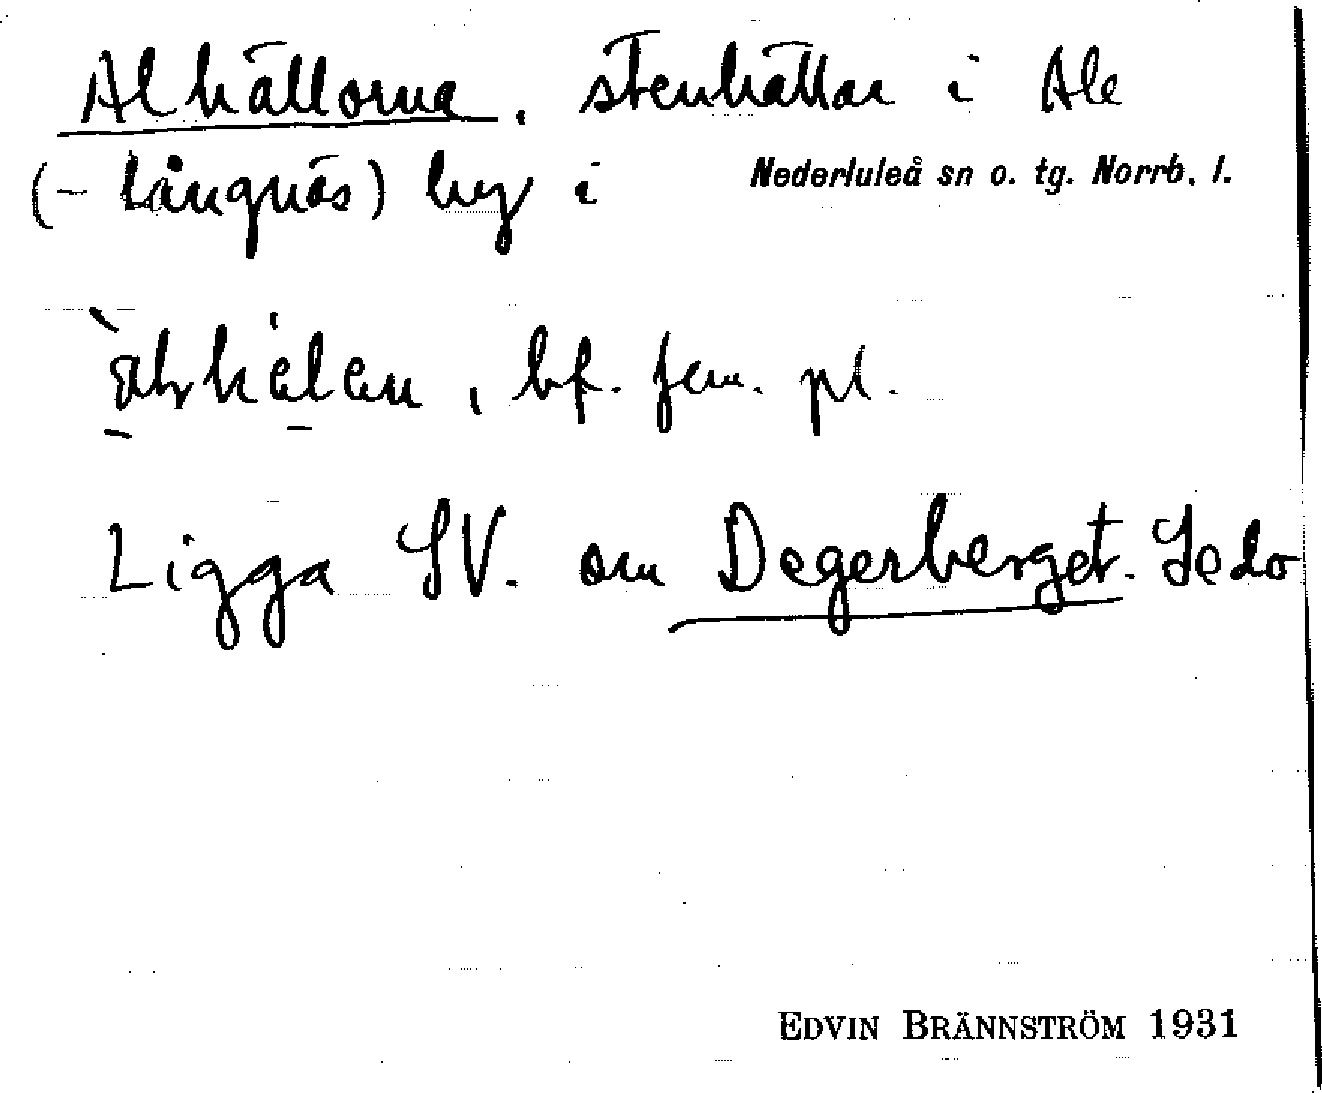 Alhällorna, stenhällar i Ale
(- Långnäs) by i Nederluleå sn o. tg. Norrb. l.
bf. fem. pl.
Ligga SV. om Degerberget. Se do
EDVIN BRÄNNSTRÖM 1931